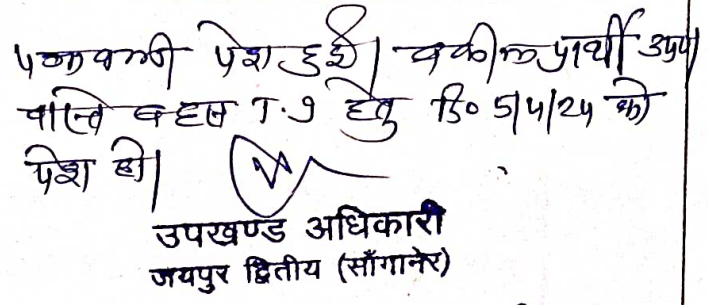 पत्रावली पेश हुई। वकील प्रार्थी उप०
वास्ते बहस T.I हेतु दि० 5/4/24 को
पेश हो।
उपखण्ड अधिकारी
जयपुर द्वितीय (साँगानेर)